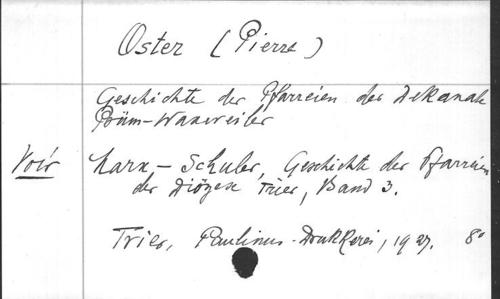 Oster (Pierre)
Geschichte der Pfarreien der Dekanate
Prüm-Waxweiler
Voir Marx-Schuler, Geschichte der Pfarreien
der Diözese Trier, Band 3.
Trier, Paulinus-Druckkerei, 1927. 8°